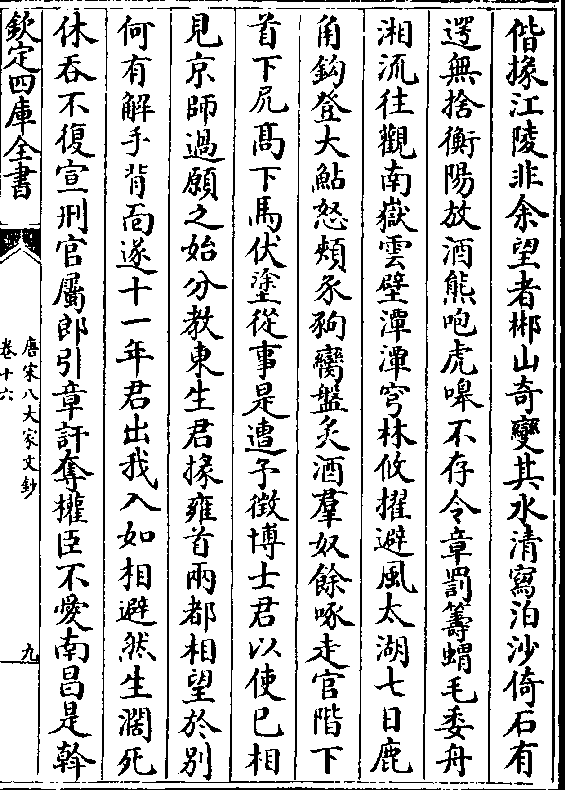 偕掾江陵非余望者郴山奇變其水清寫泊沙倚石有
遌無捨衡陽放酒熊咆虎嘷不存令章罰籌蝟毛委舟
湘流往觀南嶽雲壁潭潭穹林攸擢避風太湖七日鹿
角鈎登大鮎怒頰豕豞臠盤炙酒羣奴餘啄走官階下
首下尻髙下馬伏塗從事是遭予徴博士君以使已相
見京師過願之始分教東生君掾雍首兩都相望於別
何有解手背面遂十一年君出我入如相避然生濶死
休吞不復宣刑官屬郎引章訐奪權臣不愛南昌是斡
欽定四庫全書
唐宋八大家文鈔
卷十六
九